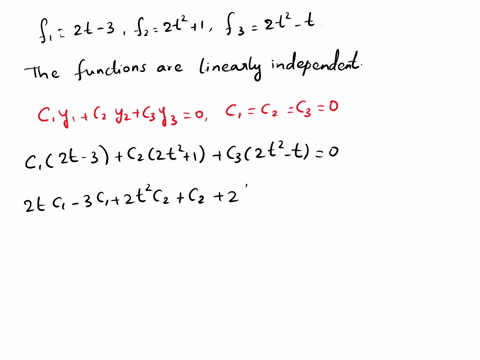 f₁ = 2t-3, f₂ = 2t²+1, f₃ = 2t²-t.
The functions are linearly independent.
C₁y₁+C₂y₂+C₃y₃=0, C₁=C₂=C₃=0
C₁(2t-3)+C₂(2t²+1)+C₃(2t²-t)=0
2tC₁-3C₁+2t²C₂+C₂+2